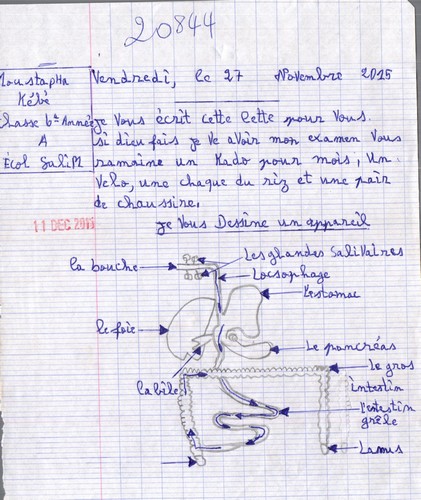 20844
Moustapha
Kébé
Classe 6e Année
A
Écol Salim
Vendredi, le 27 Novembre 2015
je Vous écrit cette lette pour Vous.
si dieu fais je Ve aVoir mon examen Vous
ramaine un Kado pour mois, Un
Velo, une chaque du riz et une pair
de chaussire.
11 DEC 2015
je Vous Dessine un appareil
la bouche
Les glandes SaliVaires
Locsophage
l'estomac
le foie
Le pancréas
Le gros
intestin
la bile
l'intestin
grèle
Lamus